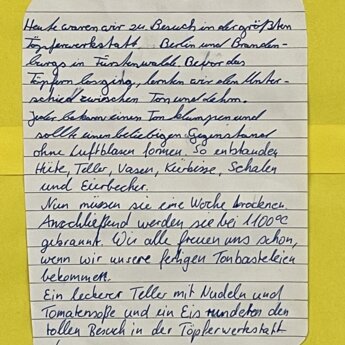 Heute waren wir zu Besuch in der größten
Töpferwerkstatt Berlin und Branden-
burgs in Fürstenwalde. Bevor das
Töpfern losging, lernten wir den Unter-
schied zwischen Ton und Lehm.
Jeder bekam einen Tonklumpen und
sollte einen beliebigen Gegenstand
ohne Luftblasen formen. So entstanden
Hüte, Teller, Vasen, Kürbisse, Schalen
und Eierbecher.
Nun müssen sie eine Woche trocknen.
Anschließend werden sie bei 1100°C
gebrannt. Wir alle freuen uns schon,
wenn wir unsere fertigen Tonbasteleien
bekommen.
Ein leckerer Teller mit Nudeln und
Tomatensoße und ein Eis rundeten den
tollen Besuch in der Töpferwerkstatt